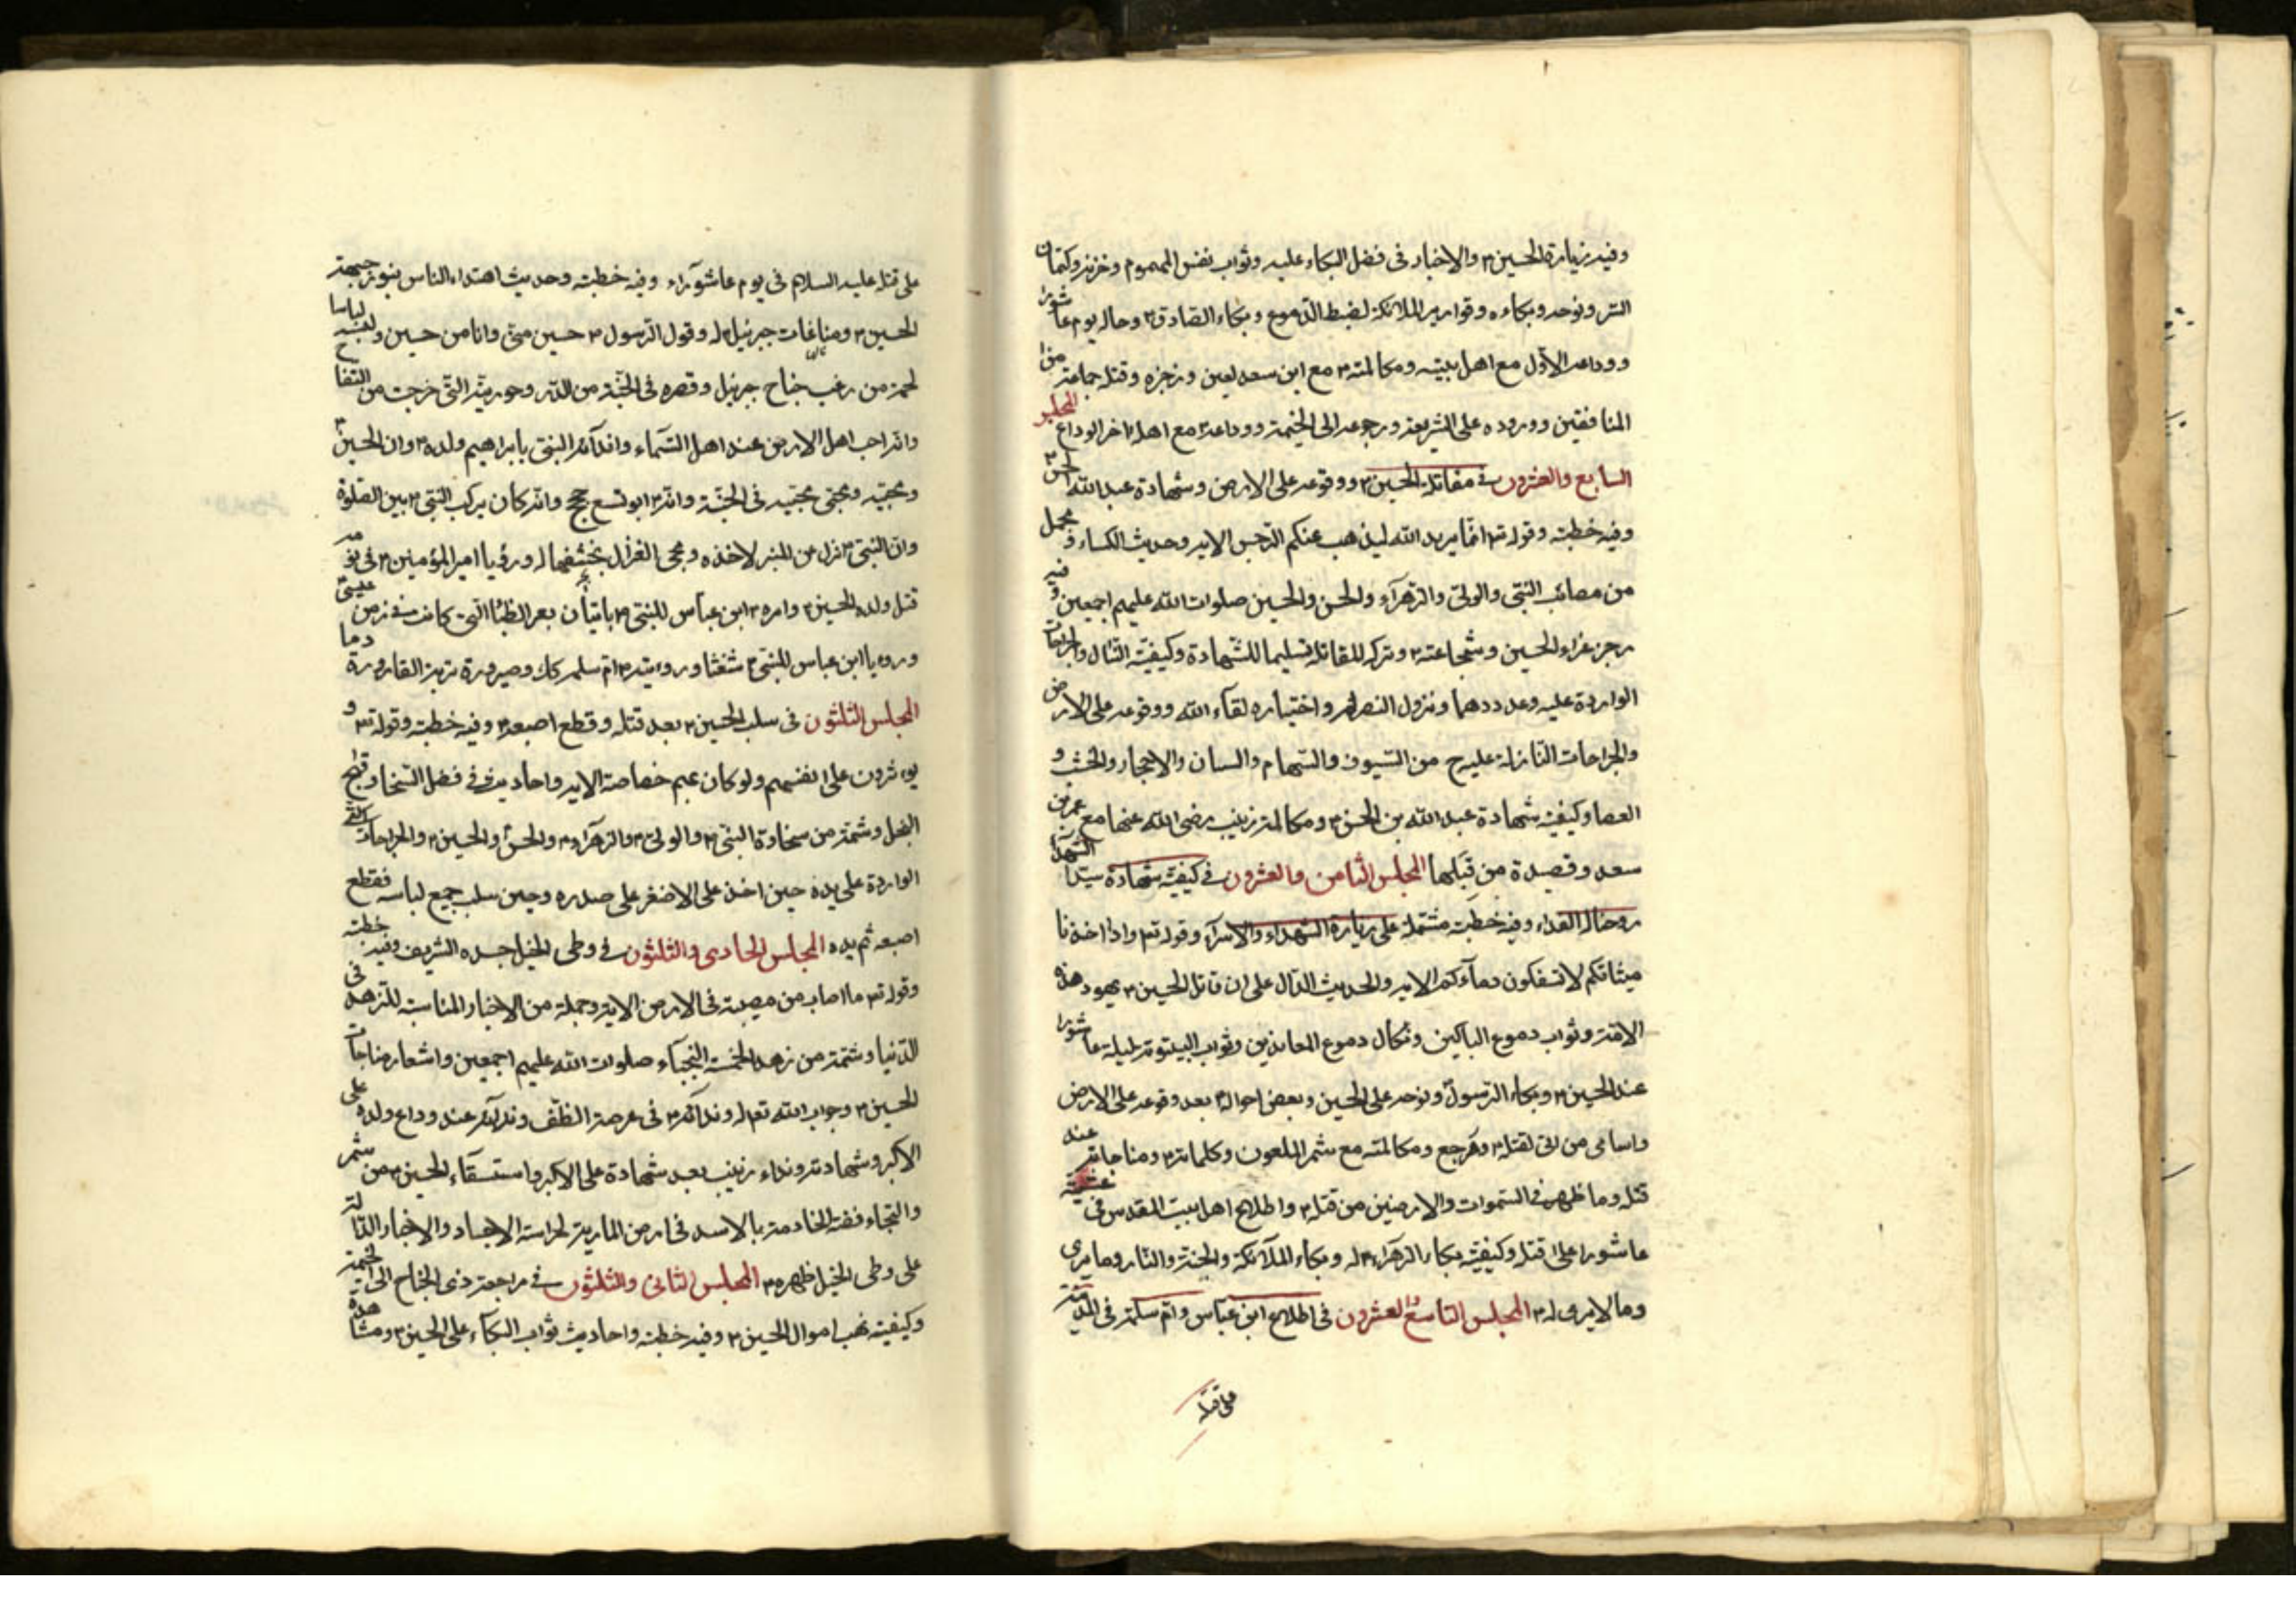 وفيه زيارة الحسين ۴ والاخبار فى فضل البكاء عليه وثواب نفس المهموم وحزنه وكتمان
السّر ونوحه وبكاءه وقوارير الملائكة لضبط الدّموع وبكاء الصّادق ۴ وحاله يوم عاشورا
ووداعه الاوّل مع اهل بيته ومكالمته ۴ مع ابن سعد لعين وزجره وقتله جماعة من
المنافقين ووروده على الشريعة ورجوعه الى الخيمة ووداعه ۴ مع اهله اخر الوداع المجلس
السابع والعشرون فى مقاتلة الحسين ۴ ووقوعه على الارض وشهادة عبد الله
وفيه خطبته وقوله تع انّما يريد الله ليذهب عنكم الرّجس الاية وحديث الكساء ومجمل
من مصائب النّبى والولىّ والزهرآء والحسن والحسين صلوات الله عليهم اجمعين وفيه
رجز غراء الحسين وشجاعته ۴ وتركه للقاتلة تسليما للشّهادة وكيفيّة القتال والجراحات
الواردة عليه وعددهما ونزول النصر له واختياره لقاء الله ووقوعه على الارض
والجراحات النّازلة عليه ح من السّيوف والسّهام والسنان والاحجار والخشب و
العصا وكيفية شهادة عبد الله بن الحسن ۴ ومكالمة زينب رضى الله عنها مع عمر بن
سعد وقصيدة من قبلها المجلس الثامن والعشرون فى كيفيّة شهادة سيّد الشهدآ
روحنا له الفداء وفيه خطبته مشتملة على زيارة الشهداء والاسرآء وقوله تع واذا اخذنا
ميثاقكم لا تسفكون دمآءكم الاية والحديث الدّال على ان قاتل الحسين ۴ يهود هذه
الامّة وثواب دموع الباكين ونكال دموع المعاندين وثواب البيتوتة ليلة عاشورا
عند الحسين ۴ وبكاء الرّسول ونوحه على الحسين وبعض احواله ۴ بعد وقوعه على الارض
واسامى من اتى لقتله ۴ ورجع ومكالمته مع شمر الملعون وكلماته ۴ ومناجاته عند
قتله وما ظهر فى السّموات والارضين من قتله ۴ واطلاع اهل بيت المقدس فى عشيّة
عاشورا على قتله وكيفيّة بكاء الزهرآء ۴ له وبكاء الملآئكة والجنة والنّار وما يرى
وما لا يرى له ۴ المجلس التاسع والعشرون فى اطلاع ابن عبّاس وامّ سلمة فى المدينة
على قتله
على قتله عليه السلام فى يوم عاشورآء وفيه خطبته وحديث اهتداء الناس بنور جبهة
الحسين ۴ ومناغات جبرئيل له وقول الرّسول ۴ حسين منّى وانا من حسين ولبسه لباسا
لحمته من زغب جناح جبرئيل وقصره فى الجنّة من الدّر وحوريّته الّتى خرجت من التفاح
وانّه احب اهل الارض عند اهل السّماء وفدآئه النبى بابراهيم ولده ۴ وان الحسين
ومحبّيه ومحبّى محبّيه فى الجنّة وانّه ۴ ابو تسع حجج وانّه كان يركب النّبى ۴ بين الصّلوة
وانّ النّبى ۴ نزل عن المنبر لاخذه ومجى الغزال بخشفها له ورؤيا امير المؤمنين ۴ فى
قتل ولده الحسين ۴ وامره ۴ ابن عباس للنبى ۴ باتيان بعر الظبأ الّتى كانت فى زمن عيسى
ورويا ابن عباس للنبى ۴ شعثا وروءيته ۴ امّ سلمه كك وصيرورة تربة القارورة دما
المجلس الثلثون فى سلب الحسين ۴ بعد قتله وقطع اصبعه ۴ وفيه خطبته وقوله تع و
يوءثرون على انفسهم ولو كان بهم خصاصة الاية واحاديث فى فضل السّخا وقبح
البخل وشمّة من سخاوة النبى ۴ والولى ۴ والزهرآء ۴ والحسن والحسين ۴ والجراحات الّتى
الواردة على يده حين اخذ على الاصغر على صدره وحين سلب جميع لباسه فقطع
اصبعه ثم يده المجلس الحادى والثلثون فى وطى الخيل جسده الشريف وفيه خطبته
وقوله تع ما اصاب من مصيبة فى الارض الاية وجملة من الاخبار المناسبة للزهد فى
الدّنيا وشمّة من زهد الخمسة النجبآء صلوات الله عليهم اجمعين واشعار مناجات
الحسين ۴ وجواب الله تعالى له وندآئه ۴ فى عرصة الطّف وندآئه عند وداع ولده على
الاكبر وشهادته ونداء زينب بعد شهادة على الاكبر واستسقآء الحسين ۴ من شمر
والتجاء فضة الخادمة بالاسد فى ارض المارية لحراسة الاجساد والاخبار الدّالّة
على وطى الخيل ظهره ۴ المجلس الثانى والثلثون فى مراجعة ذى الجناح الى الخيمة
وكيفيّة نهب اموال الحسين ۴ وفيه خطبته واحاديث ثواب البكآء على الحسين ۴ ومشاهدة